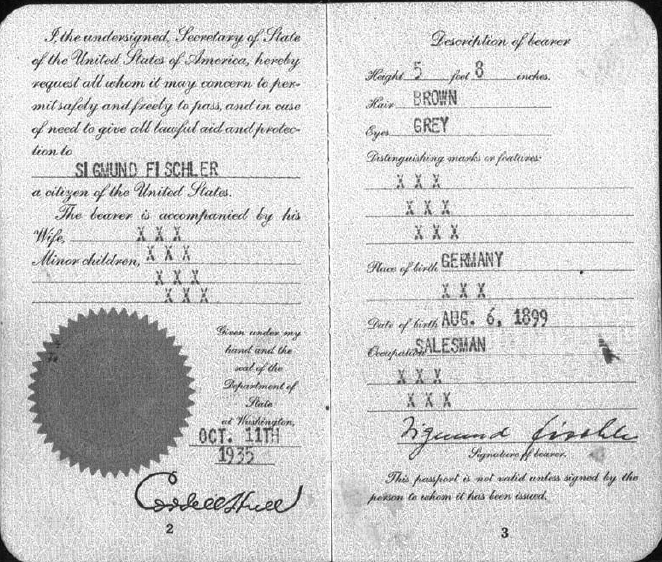 I, the undersigned, Secretary of State
of the United States of America, hereby
request all whom it may concern to per-
mit safely and freely to pass, and in case
of need to give all lawful aid and protec-
tion to
SIGMUND FISCHLER
a citizen of the United States.
The bearer is accompanied by his
Wife, X X X
Minor children, X X X
X X X
X X X
Given under my
hand and the
seal of the
Department of
State
at Washington,
OCT. 11TH
1935
Cordell Hull
2
Description of bearer
Height 5 feet 8 inches.
Hair BROWN
Eyes GREY
Distinguishing marks or features:
X X X
X X X
X X X
Place of birth GERMANY
X X X
Date of birth AUG. 6, 1899
Occupation SALESMAN
X X X
X X X
Sigmund Fischler
Signature of bearer.
This passport is not valid unless signed by the
person to whom it has been issued.
3